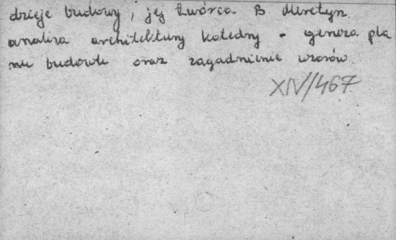 dzieje budowy, jej twórca B Meretyn.
analiza architektury katedry - geneza pla
nu budowli oraz zagadnienie wzorów
XIV/467